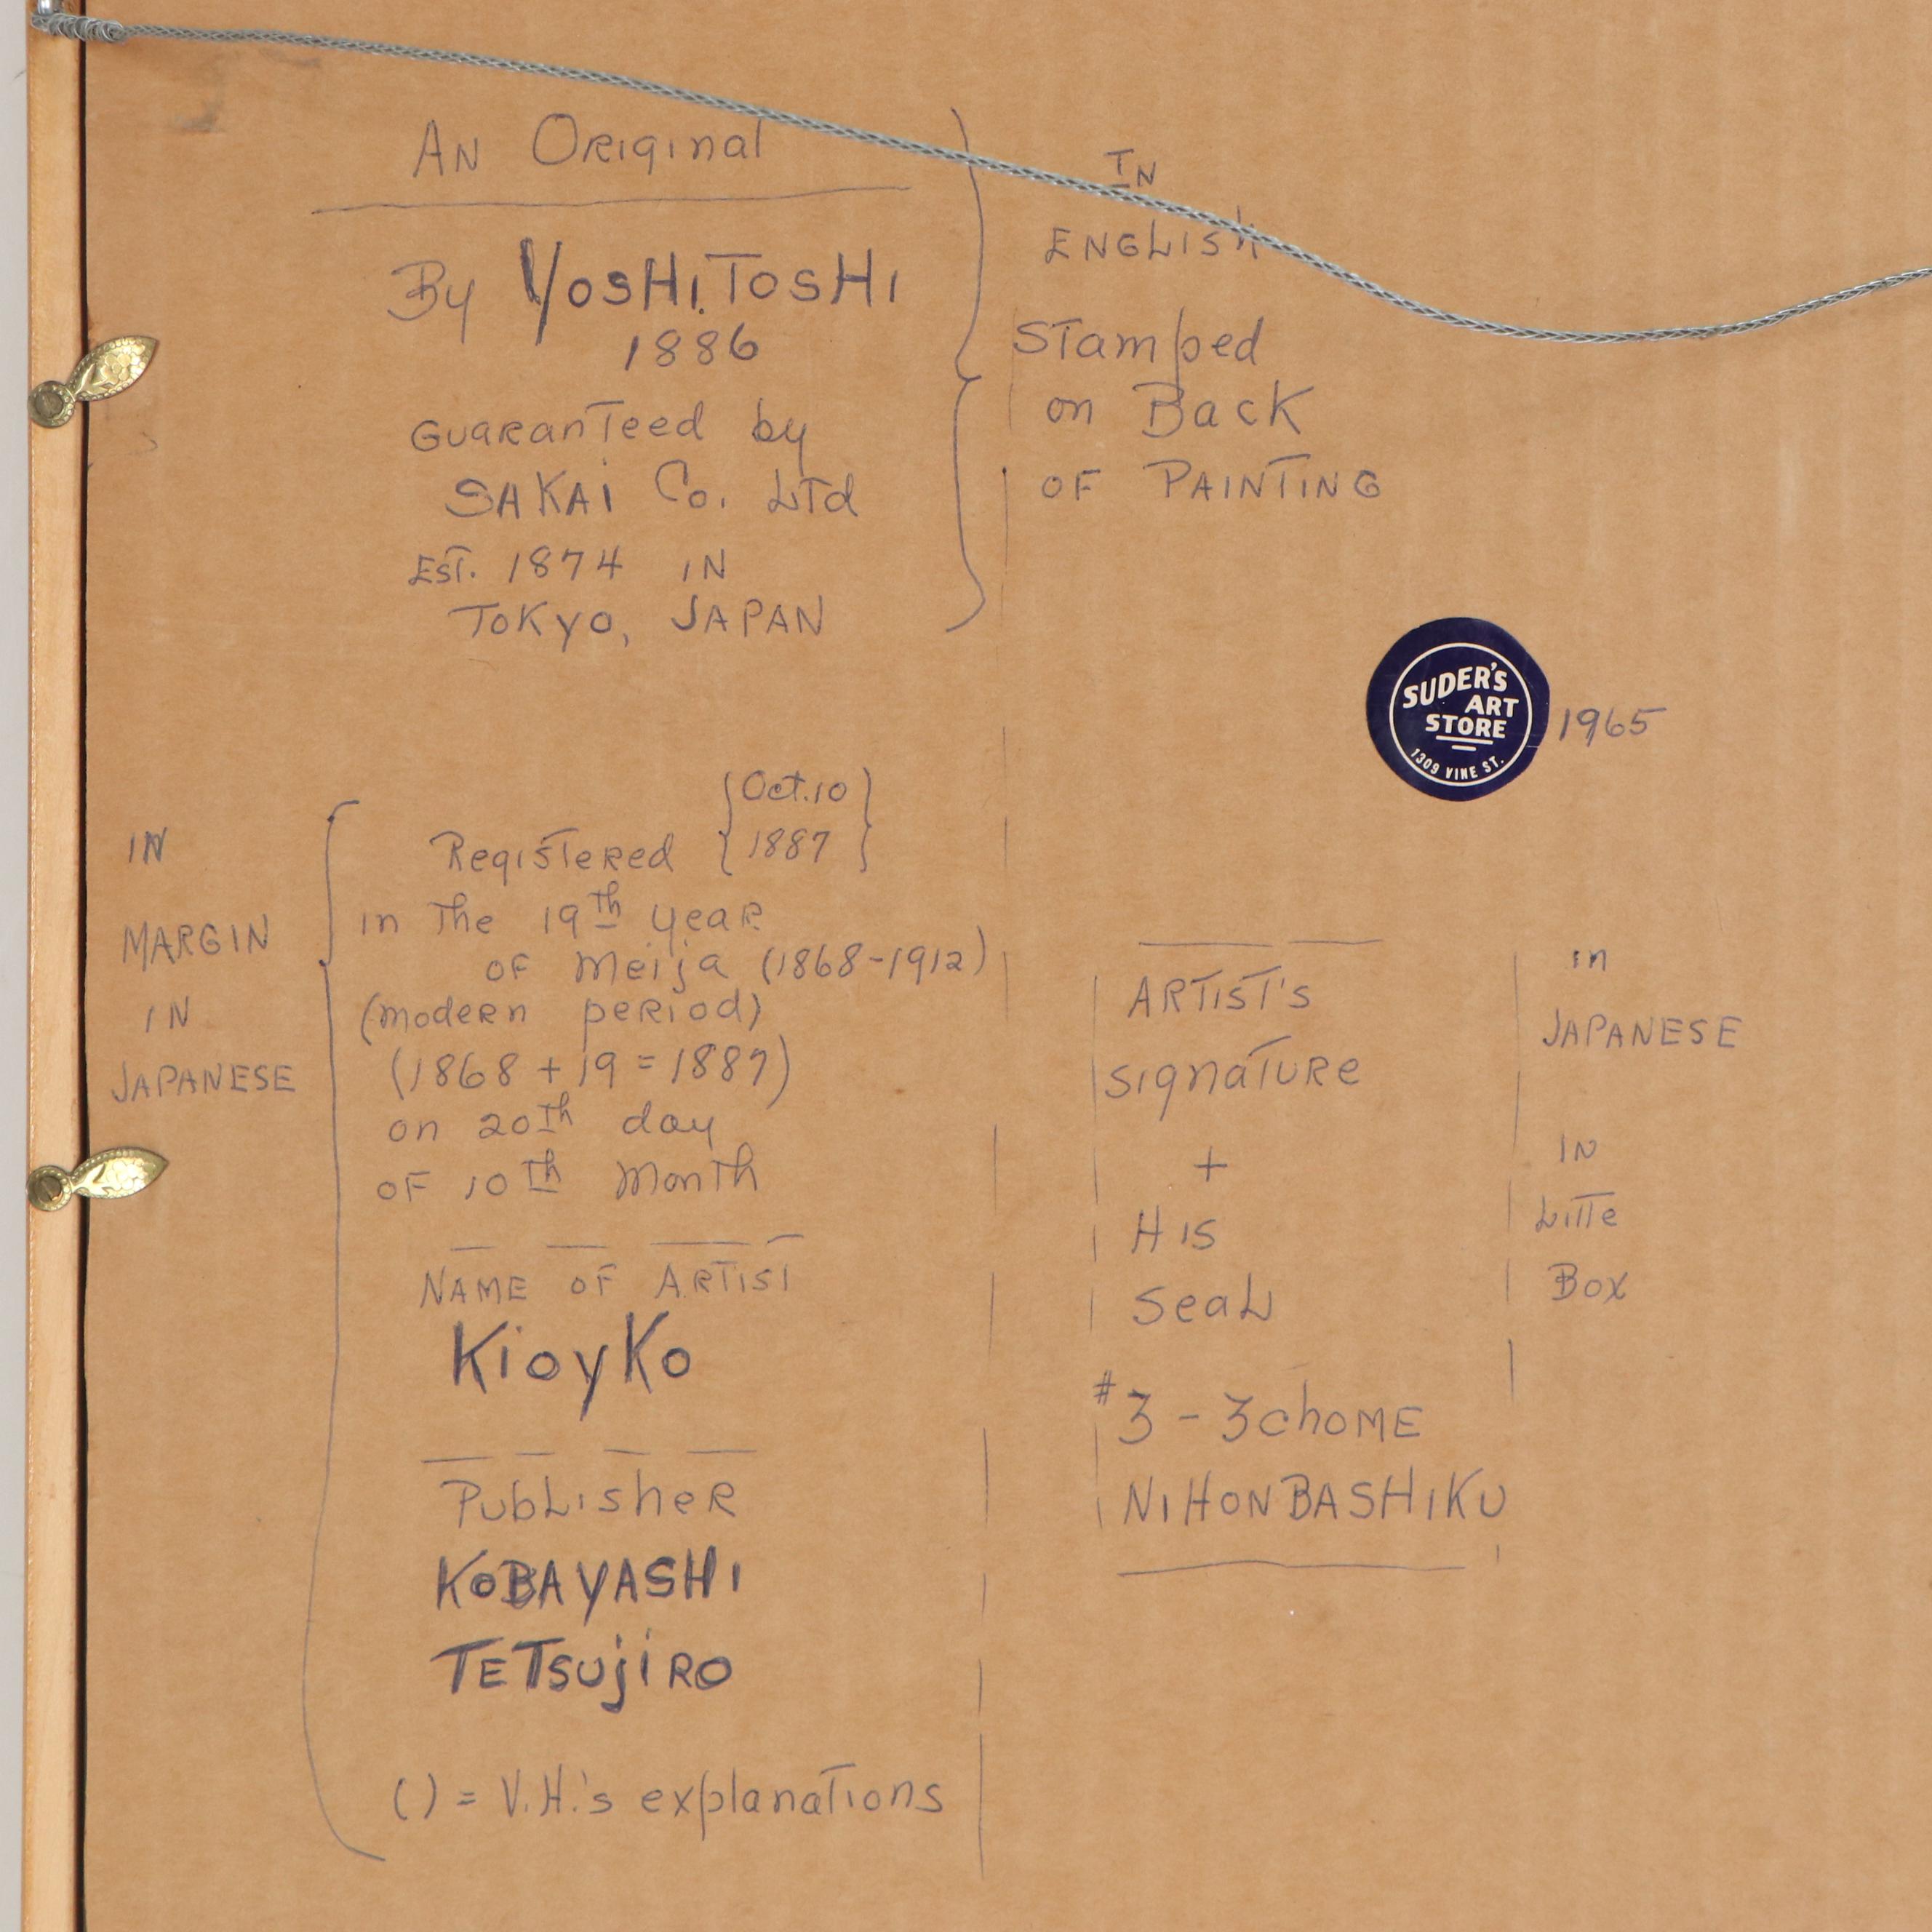 AN ORiginal
By YOSHiTOSHI
1886
Guaranteed by
SAKAi Co. LTd
EsT. 1874 IN
TOKyo, JAPAN
IN
ENGLISh
STamped
on Back
OF PAINTING
SUDER'S
ART
STORE
1309 VINE ST.
1965
IN
MARGIN
IN
JAPANESE
{Oct.10
1887}
RegisTeRed
in The 19th year
OF Meija (1868-1912)
(modern period)
(1868 + 19 = 1887)
on 20th day
OF 10th Month
NAME OF ARTIST
KioyKo
PubLisheR
KOBAYASHI
TETSUjiRO
( ) = V.H.'s explanaTions
ARTIST'S
signaTuRe
+
HIS
SeaL
in
JAPANESE
IN
LiTTe
Box
#3 - 3 chOME
NIHONBASHIKU